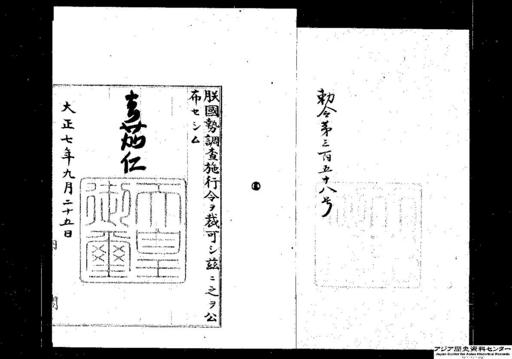 勅令第三百五十八号
朕國勢調査施行令ヲ裁可シ茲ニ之ヲ公
布セシム
嘉仁
天皇御璽
大正七年九月二十五日
アジア歴史資料センター
Japan Center for Asian Historical Records